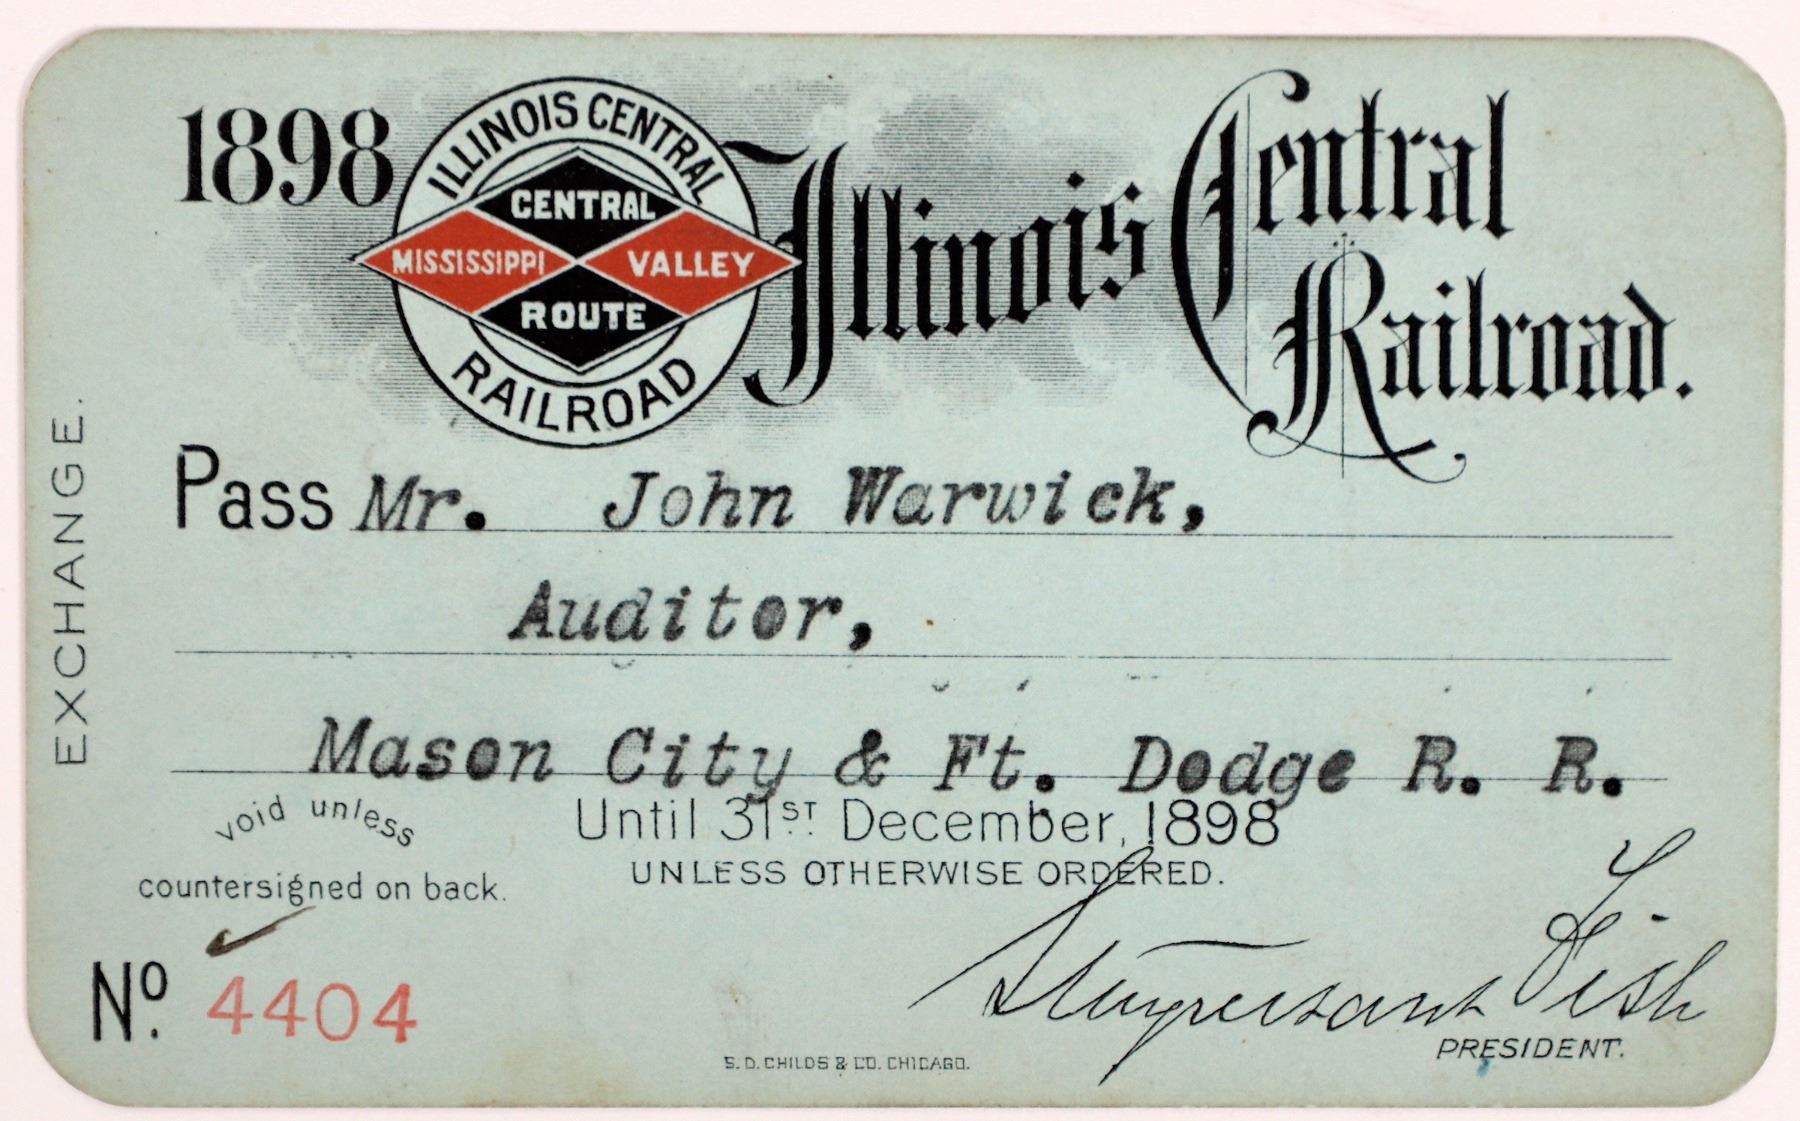 1898
ILLINOIS CENTRAL
CENTRAL
MISSISSIPPI VALLEY
ROUTE
RAILROAD
Illinois Central
Railroad.
EXCHANGE.
Pass Mr. John Warwick,
Auditor,
Mason City & Ft. Dodge R. R.
void unless
countersigned on back.
Until 31ST December, 1898
UNLESS OTHERWISE ORDERED.
No. 4404
Stuyvesant Fish
PRESIDENT.
S. D. CHILDS & CO. CHICAGO.